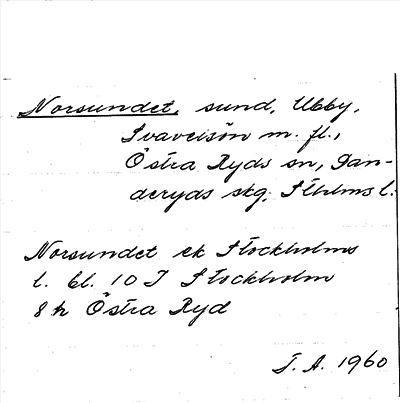 Norsundet, sund, Ubby,
Svavelsön m. fl.,
Östra Ryds sn, Dan-
deryds skg, Sthlms l.
Norsundet ek Stockholms
l. bl. 10 I Stockholm
8 h Östra Ryd
T. A. 1960